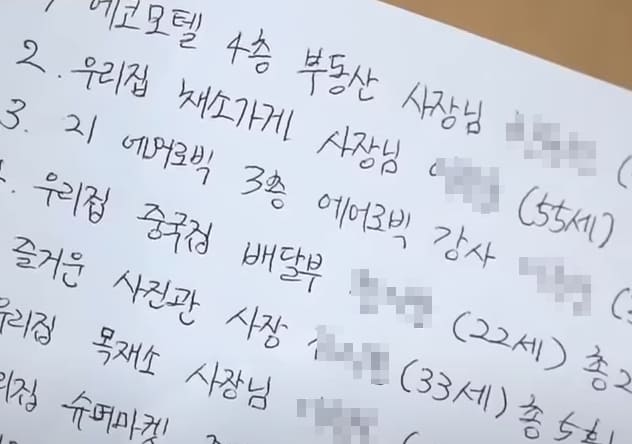 에코모텔 4층 부동산 사장님
2. 우리집 채소가게 사장님 (55세)
3. 리 에어로빅 3층 에어로빅 강사
우리집 중국집 배달부 (22세) 총 2
즐거운 사진관 사장 (33세) 총 5회
우리집 목재소 사장님
슈퍼마켓